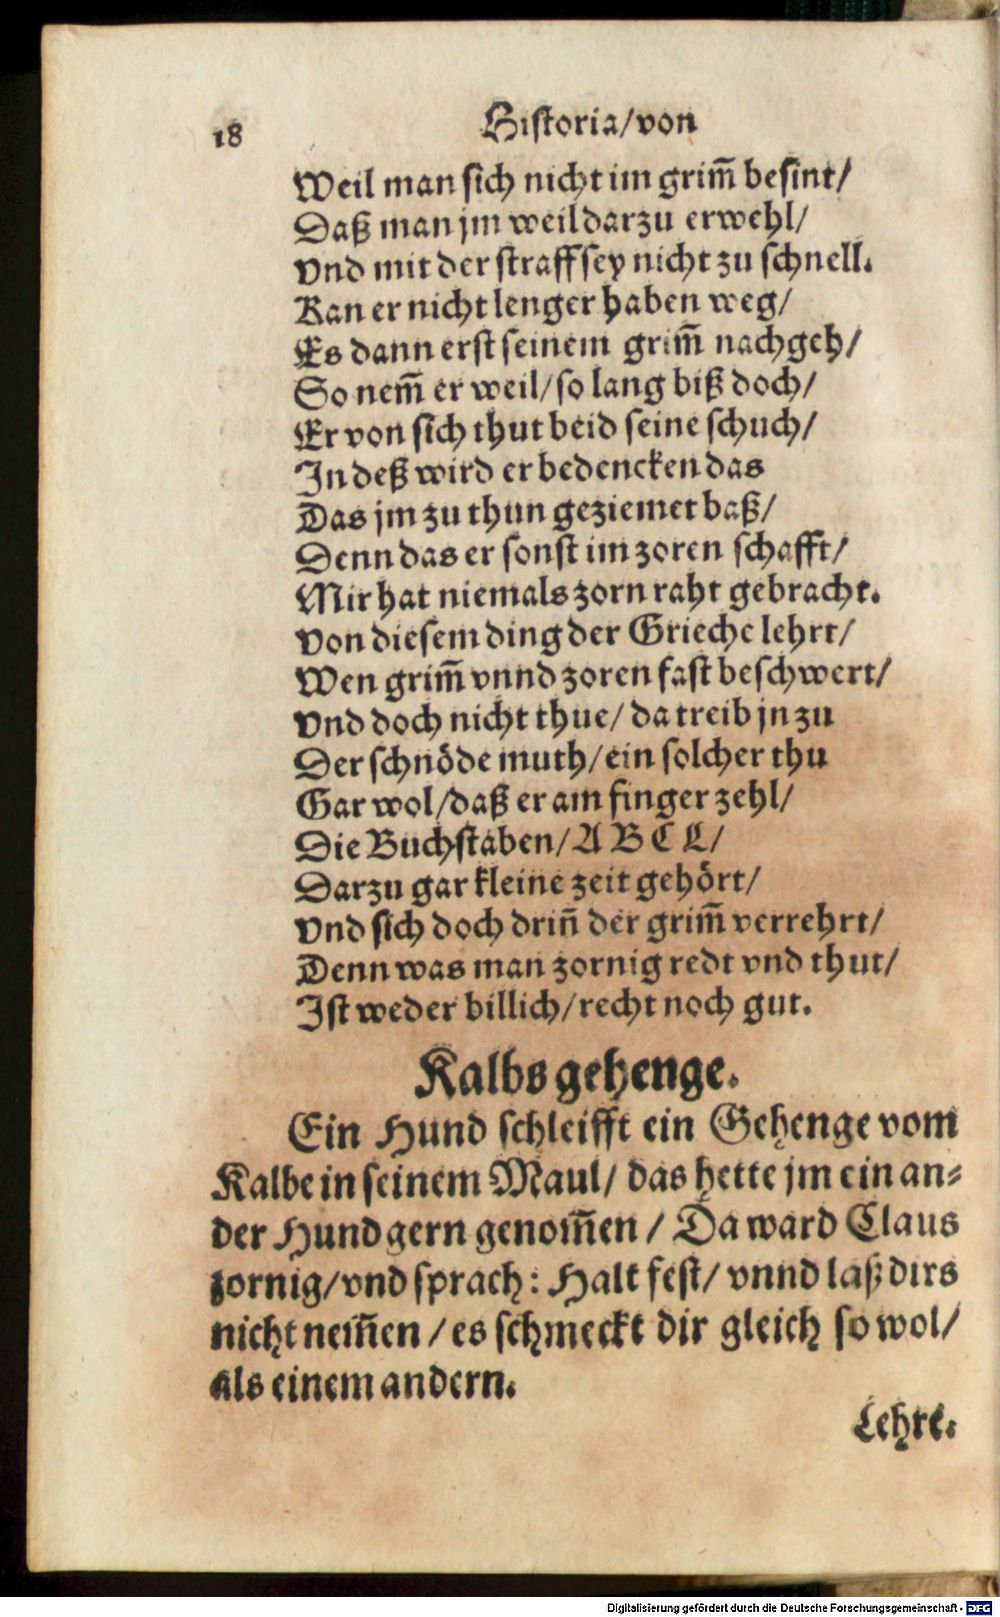 18 Historia/von
Weil man sich nicht im grim̃ besint/
Daß man jm weil darzu erwehl/
Vnd mit der straff sey nicht zu schnell.
Kan er nicht lenger haben weg/
Es dann erst seinem grim̃ nachgeh/
So nem̃ er weil/so lang biß doch/
Er von sich thut beid seine schuch/
In deß wird er bedencken das
Das jm zu thun geziemet baß/
Denn das er sonst im zoren schafft/
Mir hat niemals zorn raht gebracht.
Von diesem ding der Grieche lehrt/
Wen grim̃ vnnd zoren fast beschwert/
Vnd doch nicht thue/ da treib jn zu
Der schnöde muth/ein solcher thu
Gar wol/daß er am finger zehl/
Die Buchstaben/A B C L/
Darzu gar kleine zeit gehört/
Vnd sich doch driñ der grim̃ verrehrt/
Denn was man zornig redt vnd thut/
Ist weder billich/recht noch gut.
Kalbs gehenge.
Ein Hund schleifft ein Gehenge vom
Kalbe in seinem Maul/ das hette jm ein an-
der Hund gern genom̃en / Da ward Claus
zornig/vnd sprach: Halt fest/ vnnd laß dirs
nicht nem̃en / es schmeckt dir gleich so wol/
als einem andern.
Lehre.
Digitalisierung gefördert durch die Deutsche Forschungsgemeinschaft - DFG